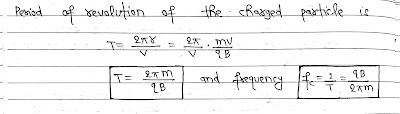 Period of revolution of the charged particle is
T = 2πr/V = 2π/V · mV/qB
T = 2πm/qB and frequency fc = 1/T = qB/2πm